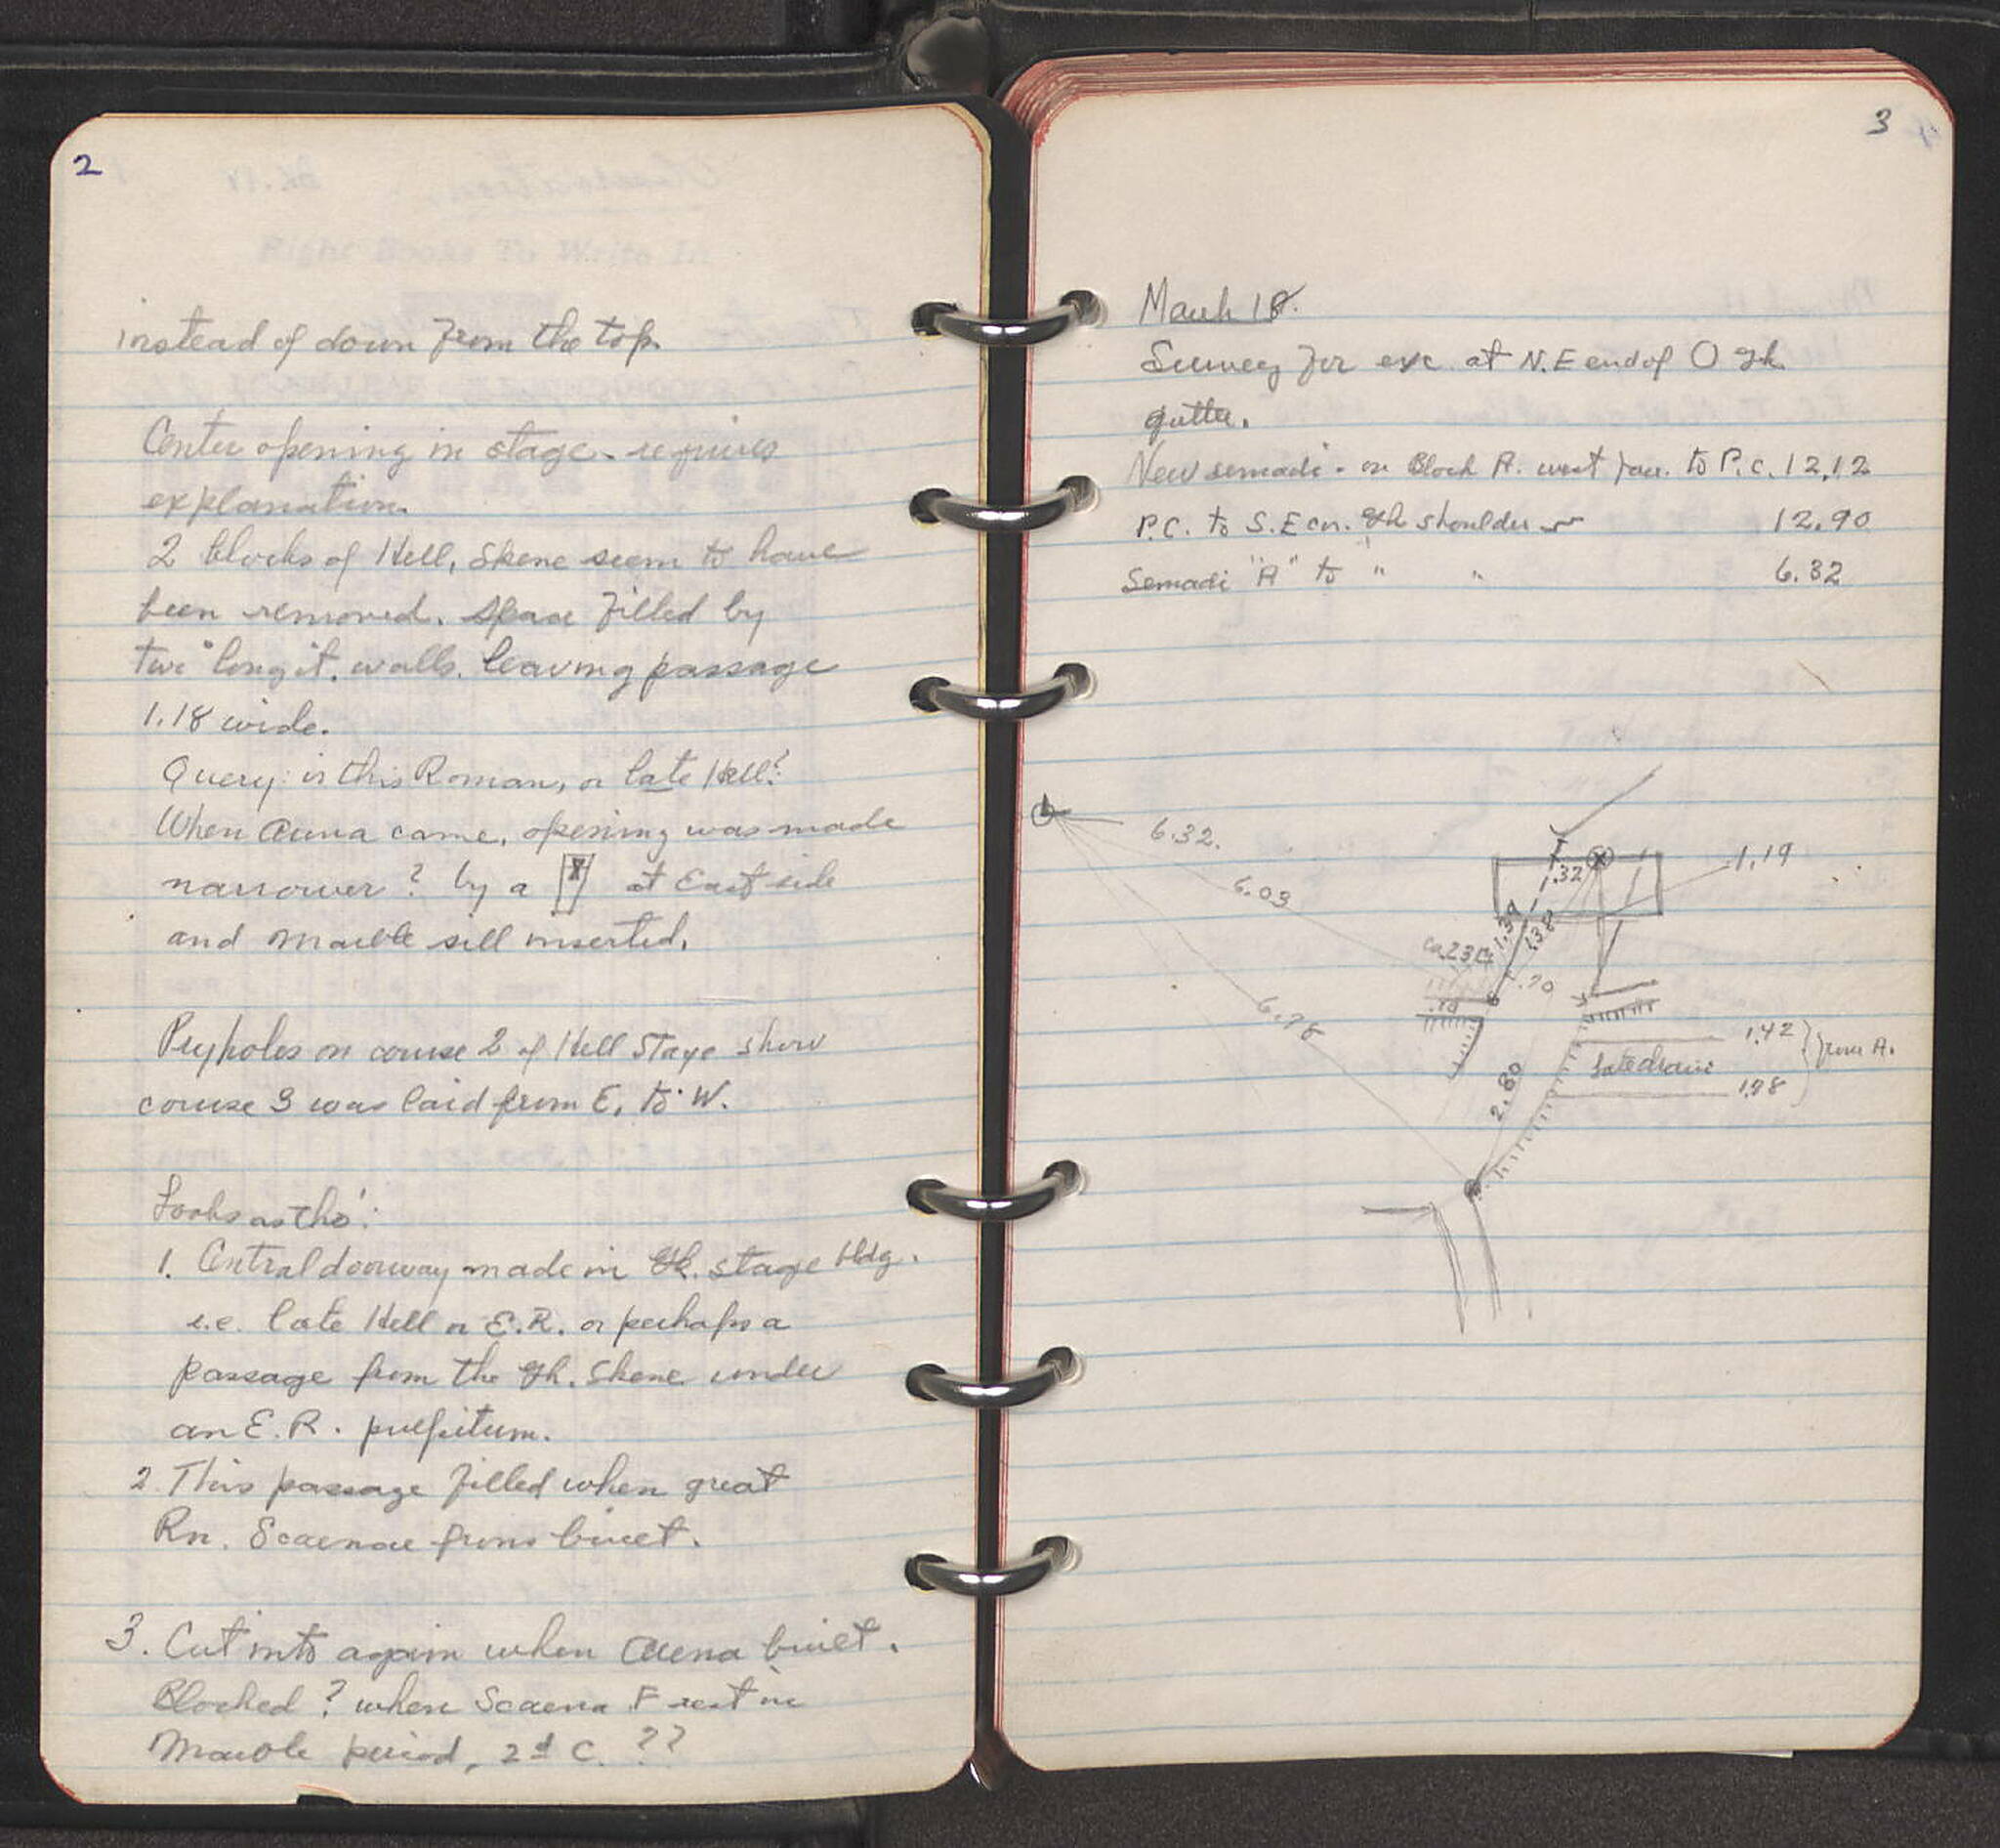 2
instead of down from the top.
Center opening in stage - requires
explanation.
2 blocks of Hell. Skene seem to have
been removed. Space filled by
two longit. walls. leaving passage
1.18 wide.
Query: is this Roman, or late Hell?
When arena came, opening was made
narrower? by a at East side
and marble sill inserted.
Pryholes on course 2 of Hell Stage show
course 3 was laid from E. to W.
Looks as tho':
1. Central doorway made in Gk. stage bldg.
i.e. late Hell or E.R. or perhaps a
passage from the Gk. Skene under
an E.R. pulpitum.
2. This passage filled when great
Rn. Scaenae frons built.
3. Cut into again when arena built.
Blocked? when Scaena F rest in
Marble period, 2d C. ??
3
March 18.
Survey for exc at N.E end of O Gk
gutter.
New semadi - on Block A. west face. to P.C. 12.12
P.C. to S.E cor. Gk shoulder 12.90
Semadi "A" to " " 6.32
6.32.
6.03
6.78
.32
1.19
1.39
1.38
ca.23
.70
.70
2.80
Late drain
1.42
1.98
from A.